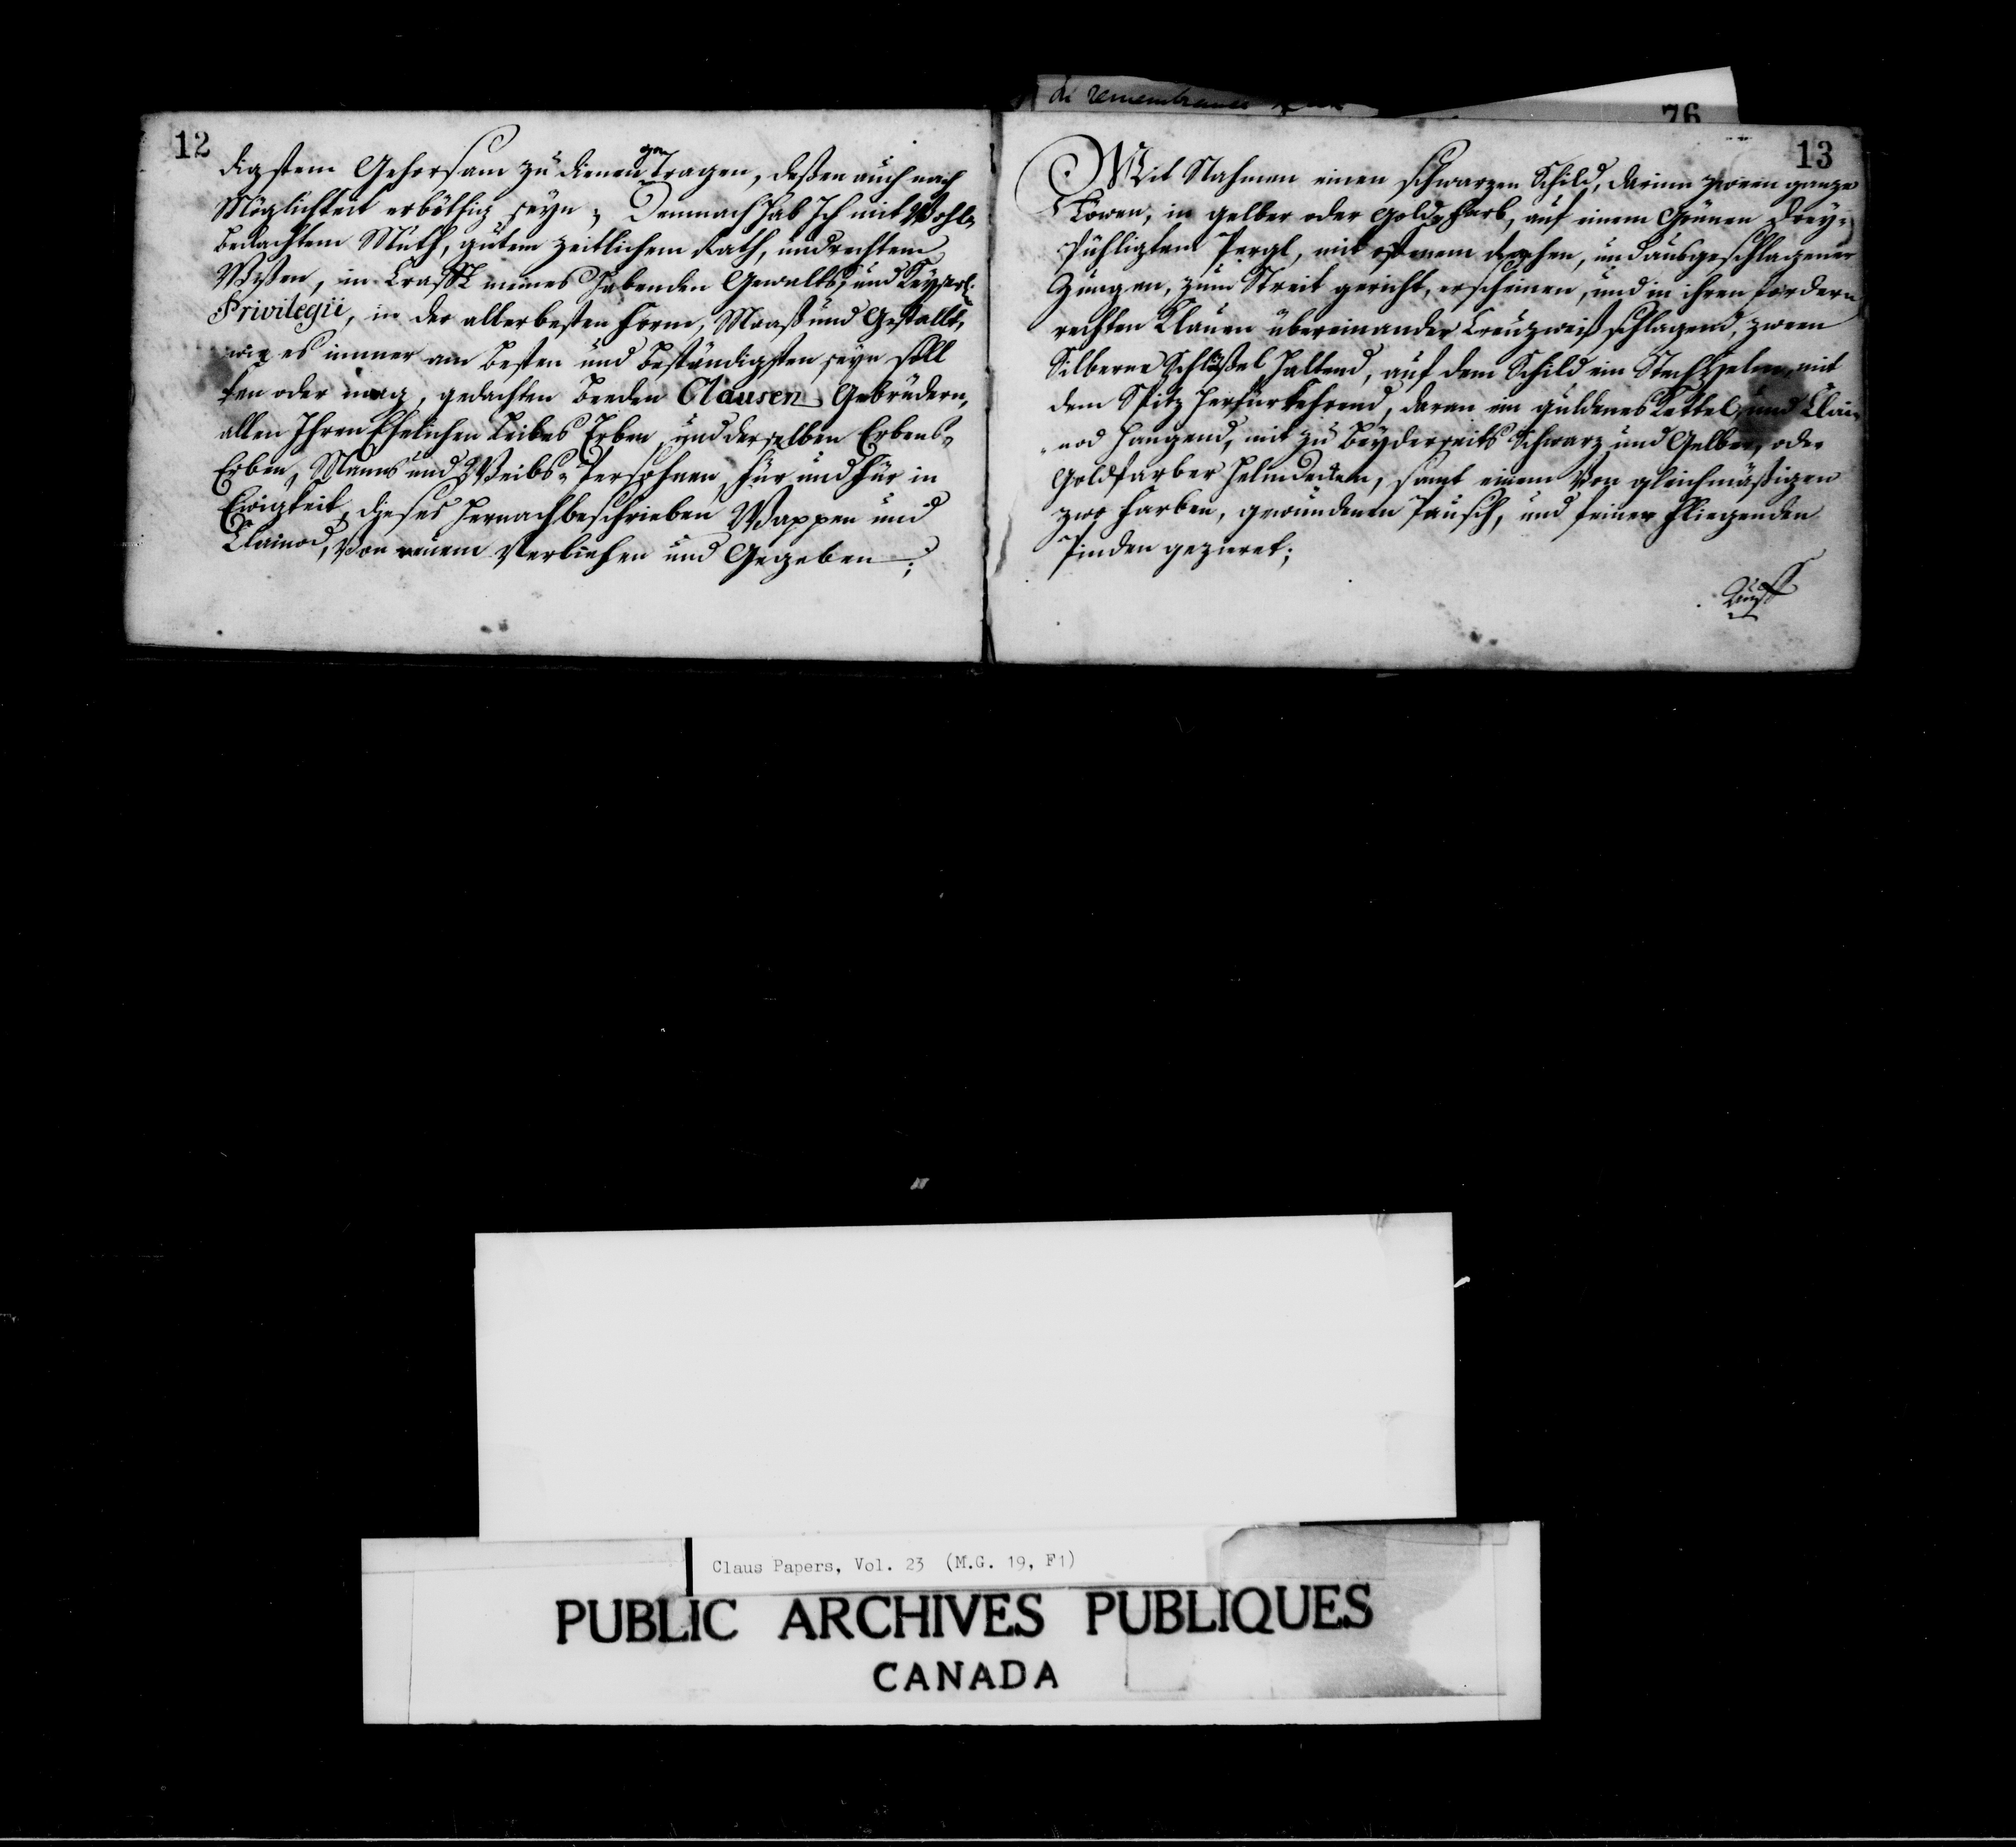 de remembrance
76
12
digstem Gehorsam zu dienen gen Tragen, deßen auch nach
Möglichkeit erböthig seyn; Demnach hab Ich mit Wohl-
bedachtem Muth, gutem zeitlichem Rath, und rechtem
Wißen, in Crafft meines habenden Gewalts, und Keyserl:
Privilegii, in der allerbesten Form, Maaß und Gestallt,
wie es immer am besten und beständigsten seyn soll
ten oder mag, gedachten beeden Clausen Gebrüdern,
allen Ihren Ehelichen Leibes Erben, und derselben Erbens-
Erben, Manns und Weibs-Persohnen, für und für in
Ewigkeit, dieses hernachbeschrieben Wappen und
Clainod, Von neuem Verliehen und Gegeben;
13
Mit Nahmen einen schwarzen Schild, darinn zween ganze
Löwen, in gelber oder Gold-Farb, auf einem Grünen Drey-
Pühligten Pergl, mit ofenem Rachen, und ausgeschlagener
Zungen, zum Streit gericht, erscheinen, und in ihren fordern
rechten Klauen übereinander Creuzweiß schlagend, zween
Silberne Schlüßel haltend, auf dem Schild ein Stechhelm, mit
dem Spitz herfürkehrend, daran ein guldenes Kettel, und Clai-
nod hangend, mit zu beyderseits Schwarz und Gelber, oder
Goldfarber Helmdecken, samt einem Von gleichmäßigen
zwo Farben, gewundenen Pausch, und seiner Fliegenden
Pinden gezieret;
Auff
Claus Papers, Vol. 23 (M.G. 19, F1)
PUBLIC ARCHIVES PUBLIQUES
CANADA